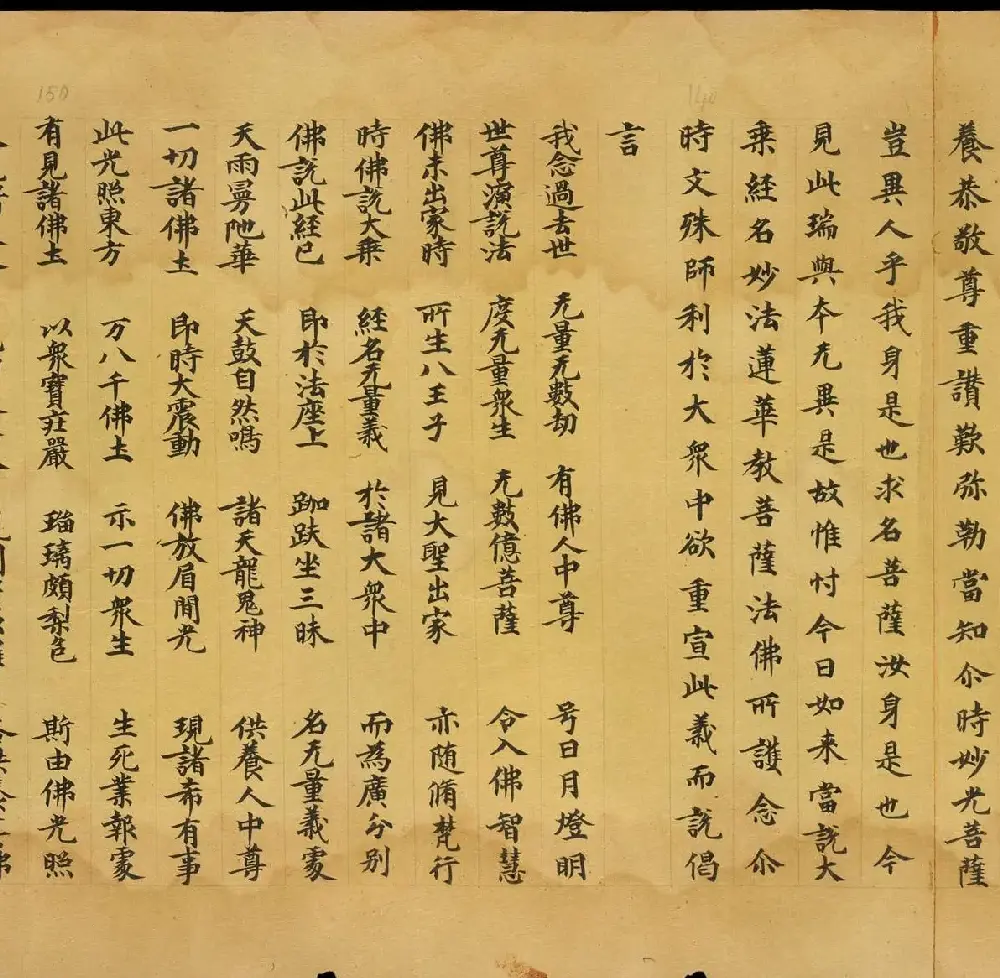 養恭敬尊重讃歎弥勒當知尒時妙光菩薩
豈異人乎我身是也求名菩薩汝身是也今
見此瑞與本无異是故惟忖今日如来當説大
乗経名妙法蓮華教菩薩法佛所護念尒
時文殊師利於大衆中欲重宣此義而説偈
言
我念過去世 无量无數劫 有佛人中尊 号日月燈明
世尊演説法 度无量衆生 无數億菩薩 令入佛智慧
佛未出家時 所生八王子 見大聖出家 亦随脩梵行
時佛説大乗 経名无量義 於諸大衆中 而為廣分别
佛説此経已 即於法座上 跏趺坐三昧 名无量義處
天雨曼陁華 天鼓自然鳴 諸天龍鬼神 供養人中尊
一切諸佛土 即時大震動 佛放眉間光 現諸希有事
此光照東方 万八千佛土 示一切衆生 生死業報處
有見諸佛土 以衆寶莊嚴 瑠璃頗梨色 斯由佛光照
140
150